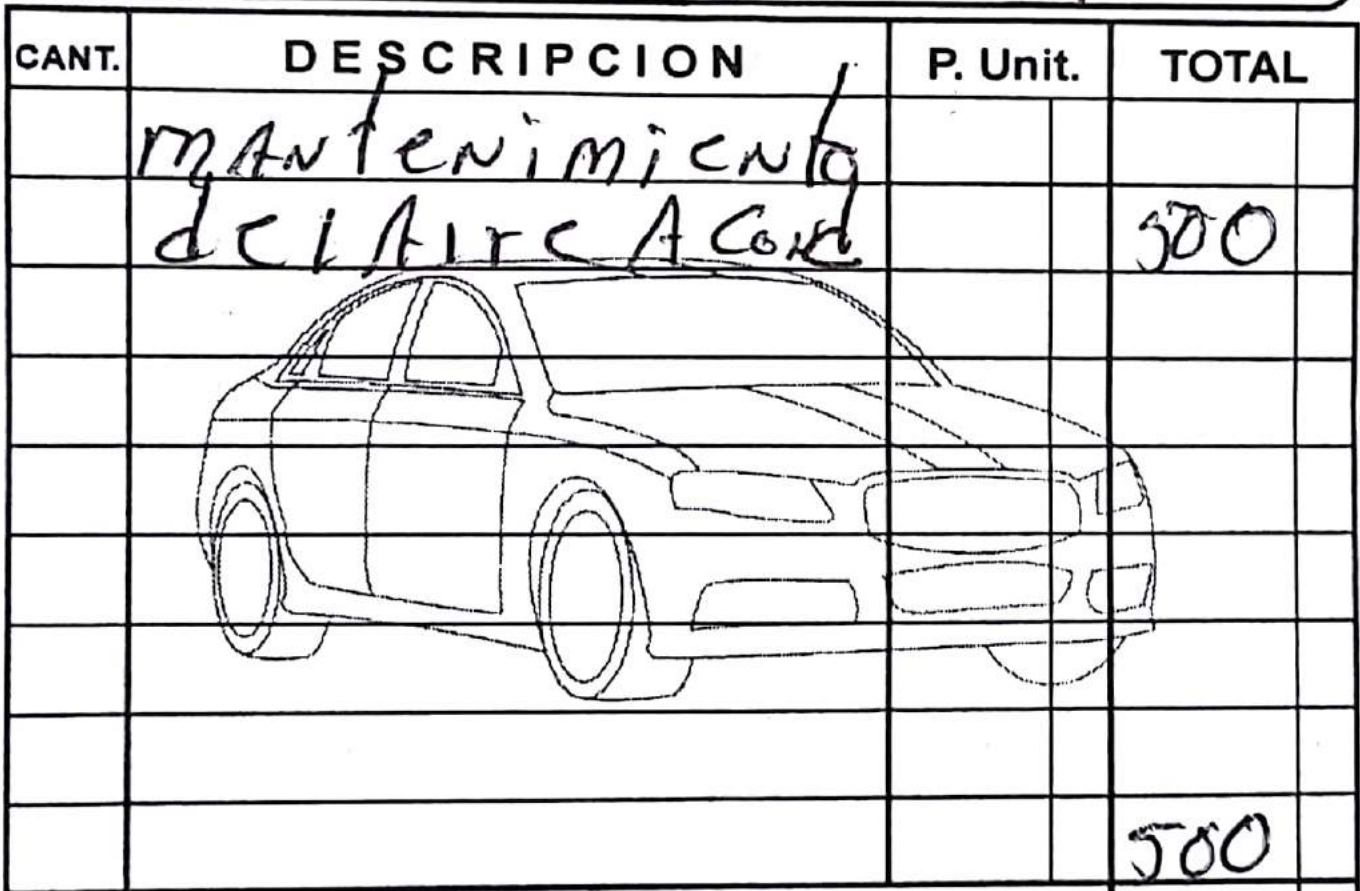 CANT. DESCRIPCION P. Unit. TOTAL
mANTeNimieNto
del Aire ACond 500
500